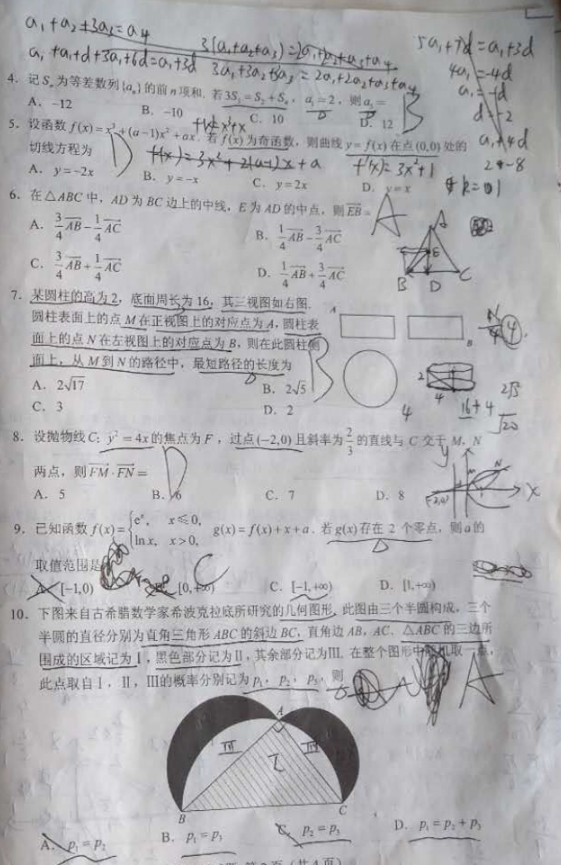 a₁+a₂+3a₃=a₄
3(a₁+a₂+a₃)=2a₁+2a₂+a₃+a₄
5a₁+7d=a₁+3d
a₁+a₁+d+3a₁+6d=a₁+3d
3a₁+3a₂+3a₃=2a₁+2a₂+a₃+a₄
4a₁=-4d
a₁=-d
4. 记Sₙ为等差数列{aₙ}的前n项和. 若3S₃=S₂+S₄, a₁=2, 则a₅=
B
A. -12
B. -10
C. 10
D. 12
d=-2
5. 设函数f(x)=x³+(a-1)x²+ax. 若f(x)为奇函数, 则曲线y=f(x)在点(0,0)处的
a₁+4d
切线方程为
D
f(x)=3x²+2(a-1)x+a
f'(x)=3x²+1
2+-8
A. y=-2x
B. y=-x
C. y=2x
D. y=x
k=1
6. 在△ABC中, AD为BC边上的中线, E为AD的中点, 则EB=
A
A. 3/4 AB - 1/4 AC
B. 1/4 AB - 3/4 AC
C. 3/4 AB + 1/4 AC
D. 1/4 AB + 3/4 AC
A
E
B D C
7. 某圆柱的高为2, 底面周长为16, 其三视图如右图.
圆柱表面上的点M在正视图上的对应点为A, 圆柱表
面上的点N在左视图上的对应点为B, 则在此圆柱侧
面上, 从M到N的路径中, 最短路径的长度为
B
A
B
A. 2√17
B. 2√5
C. 3
D. 2
2
4
4
2√5
16+4
√20
8. 设抛物线C: y²=4x的焦点为F, 过点(-2,0)且斜率为2/3的直线与C交于M, N
两点, 则FM·FN=
D
A. 5
B. 6
C. 7
D. 8
y
N
x
(-2,0)
9. 已知函数f(x)={eˣ, x≤0, ln x, x>0, g(x)=f(x)+x+a. 若g(x)存在2个零点, 则a的
取值范围是
C
A. [-1,0)
B. [0,+∞)
C. [-1,+∞)
D. [1,+∞)
10. 下图来自古希腊数学家希波克拉底所研究的几何图形, 此图由三个半圆构成, 三个
半圆的直径分别为直角三角形ABC的斜边BC, 直角边AB, AC. △ABC的三边所
围成的区域记为Ⅰ, 黑色部分记为Ⅱ, 其余部分记为Ⅲ. 在整个图形中随机取一点,
此点取自Ⅰ, Ⅱ, Ⅲ的概率分别记为p₁, p₂, p₃, 则
A
A
Ⅲ
Ⅰ
Ⅲ
B
C
A. p₁=p₂
B. p₁=p₃
C. p₂=p₃
D. p₁=p₂+p₃